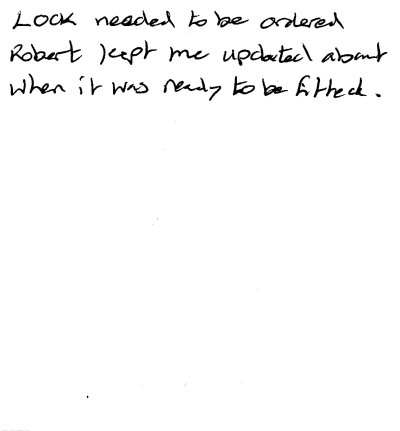 Lock needed to be ordered
Robert kept me updated about
when it was ready to be fitted.